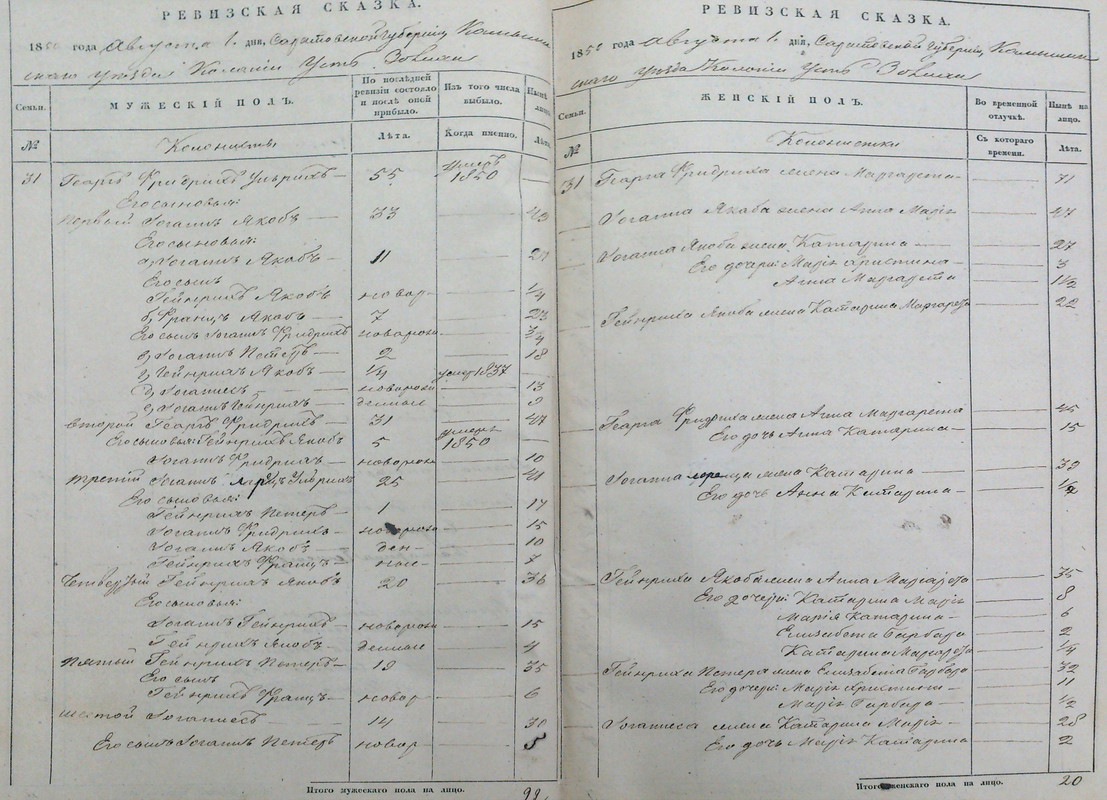 РЕВИЗСКАЯ СКАЗКА.
18 года Августа 1. дня, Саратовской Губерніи Камышин
скаго уѣзда Колоніи Усть
Семьи.
МУЖЕСКІЙ ПОЛЪ.
По послѣдней ревизіи состояло и послѣ оной прибыло.
Изъ того числа выбыло.
Нынѣ на лицо.
№
Колонисты
Лѣта.
Когда именно.
Лѣта.
31 Георгъ Фридрихъ Ульрихъ — 55 умеръ 1850 —
Его сыновья:
первый Іоганъ Якобъ — 33 —
Его сыновья:
а, Іоганъ Якобъ — 11 — 27
Его сынъ
Гейнрихъ Якобъ новор — 1/4
б, Францъ Якобъ — 7 — 23
Его сынъ Іоганъ Фридрихъ новорожд — 3/4
в, Іоганъ Петеръ — 2 — 18
г, Гейнрихъ Якобъ — 1/4 умер 1837
д, Іоганесъ — новорожд — 13
е, Іоганъ Гейнрихъ — —
второй Георгъ Фридрихъ — 31 — 47
Его сыновья: Гейнрихъ Якобъ 5 умеръ 1850 —
Іоганъ Фридрихъ — новорожд — 10
третій Іоганъ Лоренцъ Ульрихъ 25 — 41
Его сыновья:
Гейнрихъ Петеръ — 1 — 17
Іоганъ Фридрихъ — новорожд — 15
Іоганъ Якобъ — ден — 10
Гейнрихъ Францъ — ные — 7
Четвертый Гейнрихъ Якобъ 20 — 36
Его сыновья:
Іоганъ Гейнрихъ — новорожд — 15
Гейнрихъ Якобъ — денные — 4
Пятый Гейнрихъ Петеръ — 19 — 35
Его сынъ
Гейнрихъ Францъ — новор — 6
шестой Іоганесъ — 14 — 30
Его сынъ Іоганъ Петеръ новор — 5
Итого мужескаго пола на лицо. 22.
РЕВИЗСКАЯ СКАЗКА.
18 года Августа 1. дня, Саратовской Губерніи Камышин
скаго уѣзда Колоніи Усть
Семьи.
ЖЕНСКІЙ ПОЛЪ.
Во временной отлучкѣ.
Нынѣ на лицо.
№
Колонистки
Съ котораго времени.
Лѣта.
31 Георга Фридриха жена Маргарета — 71
Іоганна Якоба жена Анна Марія — 47
Іоганна Якоба жена Катарина — 27
Его дочери: Марія Христина — 3
Анна Маргарета — 1 1/2
Гейнриха Якоба жена Катарина Маргарета — 22
Георга Фридриха жена Анна Маргарета — 45
Его дочь Анна Катарина — 15
Іоганна Лоренца жена Катарина — 39
Его дочь Анна Катарина —
Гейнриха Якоба жена Анна Маргарета — 35
Его дочери: Катарина Марія — 8
Марія Катарина — 6
Елизабета Барбара — 2
Катарина Маргарета — 1/4
Гейнриха Петера жена Елизабета Барбара — 32
Его дочери: Марія Христина — 11
Марія Барбара — 1/2
Іоганеса жена Катарина Марія — 28
Его дочь Марія Катарина — 2
Итого женскаго пола на лицо. 20